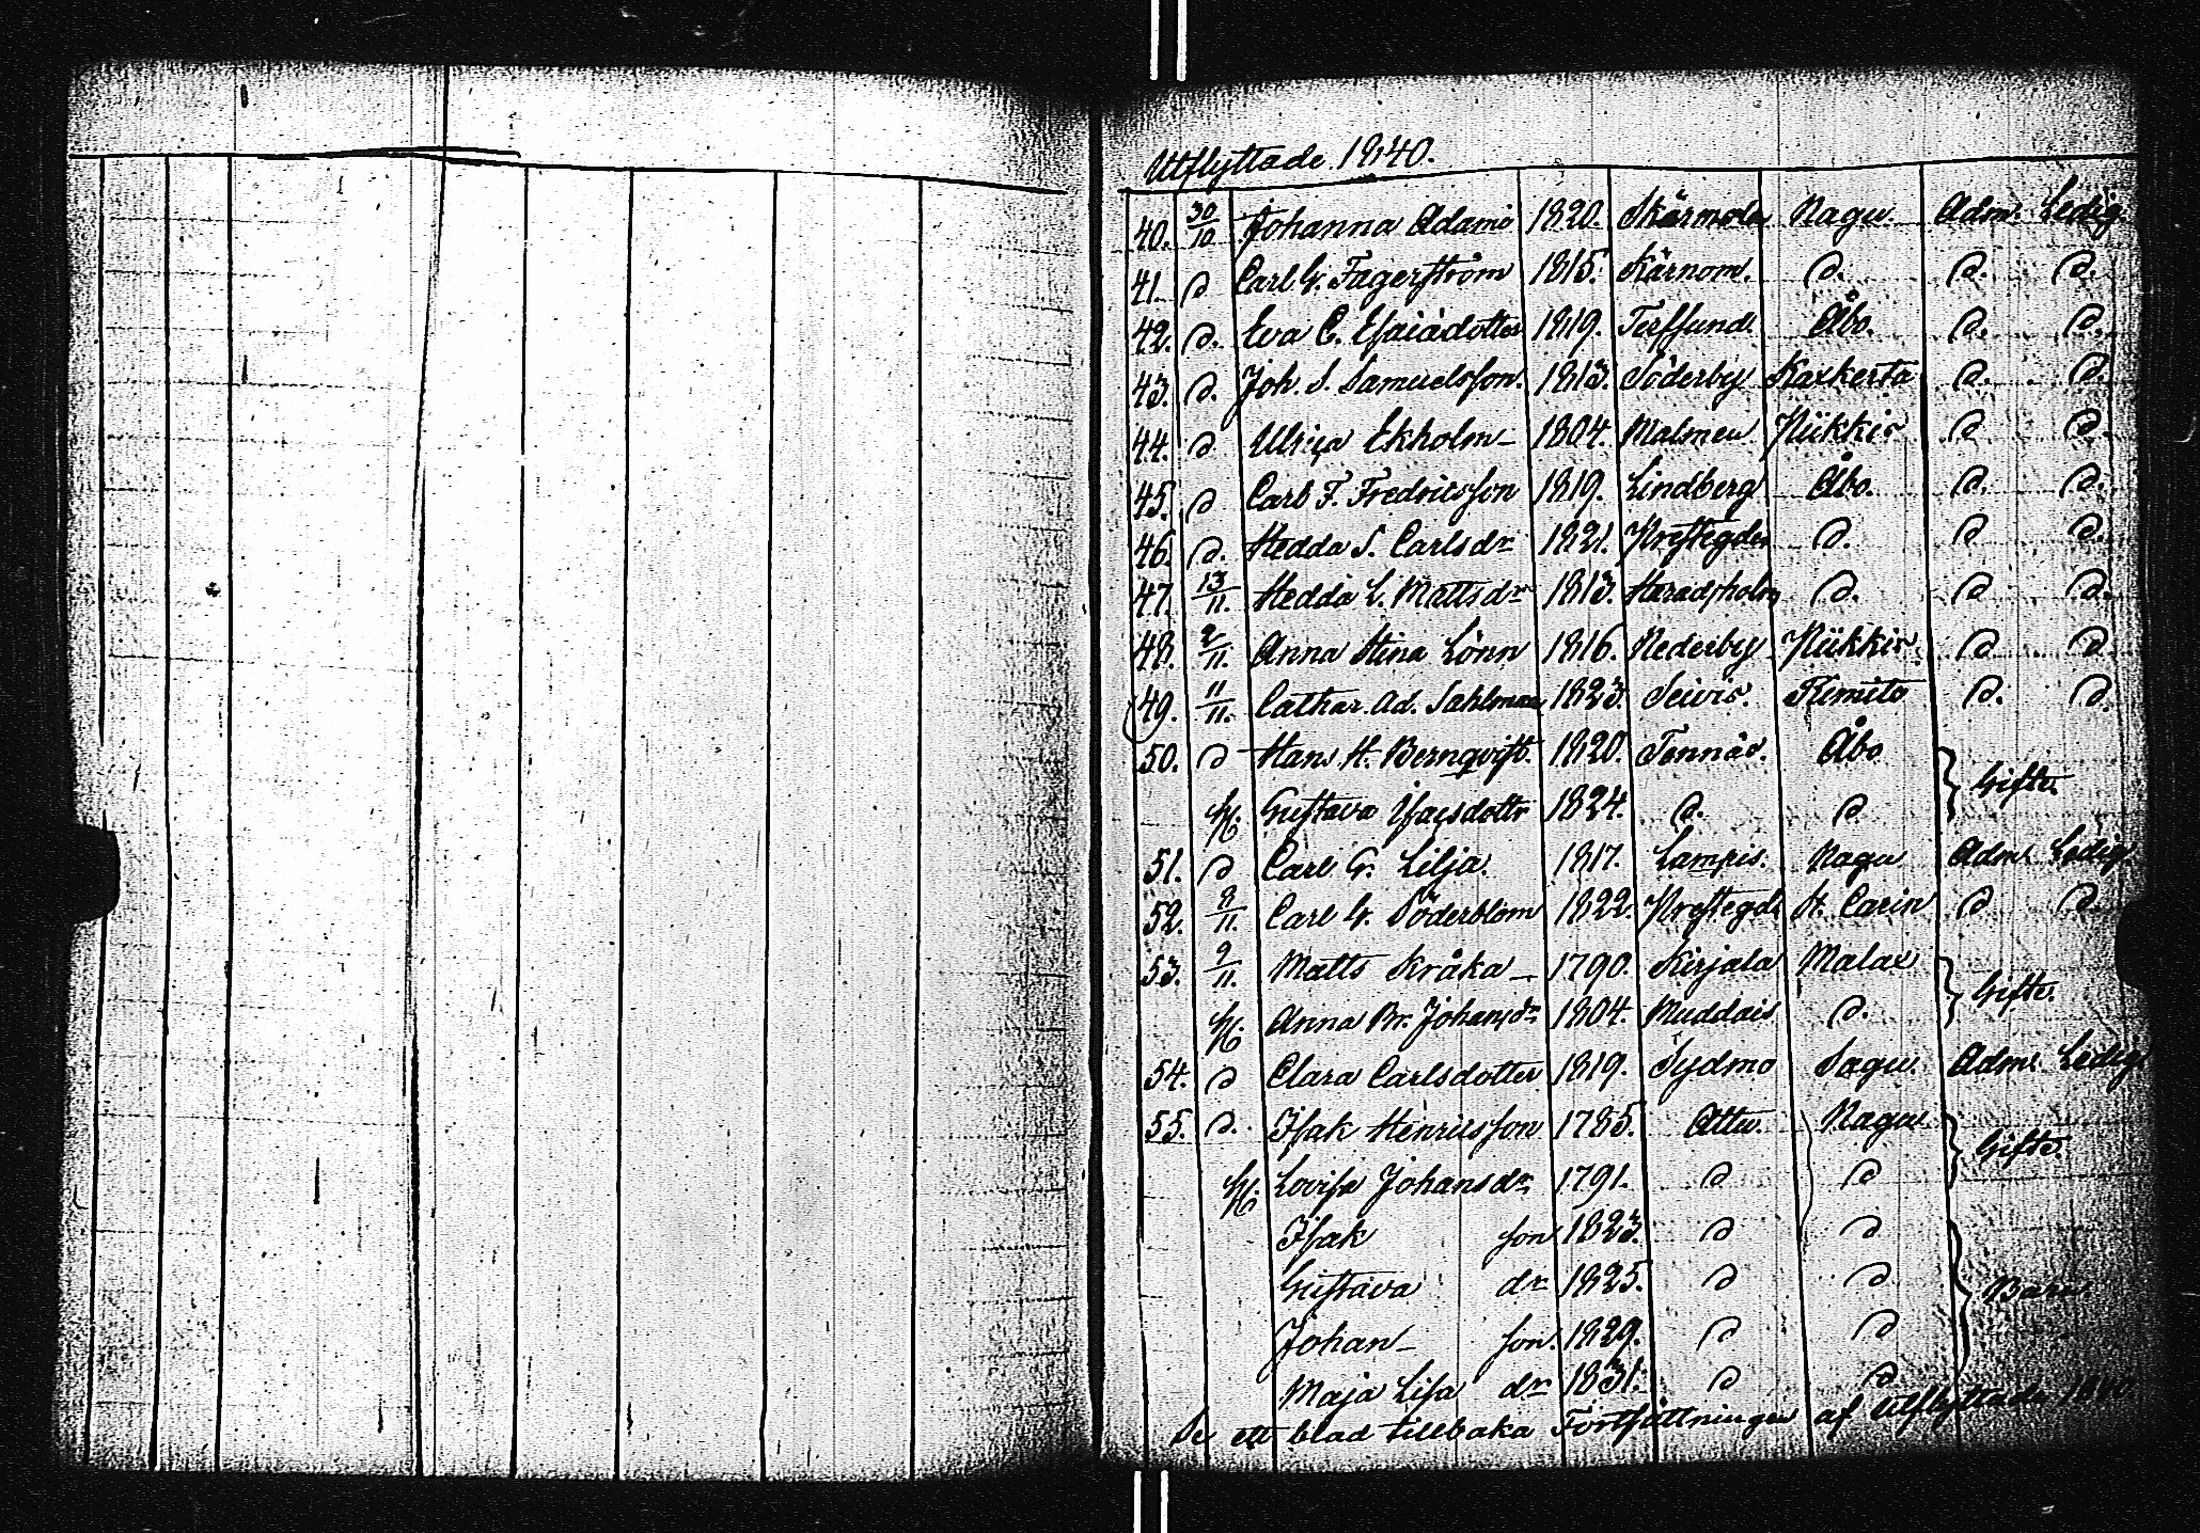 Utflyttade 1840.
40. 30/10 Johanna Adamsd 1820. Skärmola Nagu. Adm. Ledig.
41. d Carl G. Fagerström 1815. Kärnom. d. d. d.
42. d. Eva C. Esaiædotter 1819. Terfsund. Åbo. d. d.
43. d. Joh. S. Samuelsson. 1813. Söderby Kaxkerta d. d.
44. d Ulrica Ekholm 1804. Malmen Nükkis d d.
45. d Carl F. Fredricsson 1819. Lindberg Åbo. d. d.
46. d. Hedda S. Carlsdr 1821. Prestegden d. d d.
47. 13/11. Hedda L. Mattsdr 1813. Haradsholm d. d d.
48. 2/11. Anna Stina Lönn 1816. Nederby Nükkis d d
49. 11/11. Cathar. Ad. Sahlman 1823. Seivis. Kimito d. d.
50. d Hans H. Bernqvist. 1820. Tennäs. Åbo
H. Gustava Isacsdottr 1824. d. d Gifte.
51. d Carl G. Lilja. 1817. Lampis. Nagu Adm. Ledig.
52. 8/11. Carl G. Söderblom 1822. Prestegde St. Carin d d.
53. 9/11. Matts Kråka 1790. Kirjala Malax
H. Anna Br. Johansdr 1804. Muddais d. Gifte.
54. d Clara Carlsdotter 1819. Sydmo Sagu. Adm. Ledig
55. d. Isak Henricsson 1785. Attu. Nagu Gifte.
H. Lovisa Johansdr 1791. d d
Isak son 1823. d d
Gustava dr 1825. d d Barn.
Johan son. 1829. d d
Maja Lisa dr 1831. d d
Se ett blad tillbaka Fortsättningen af Utflyttade 1840